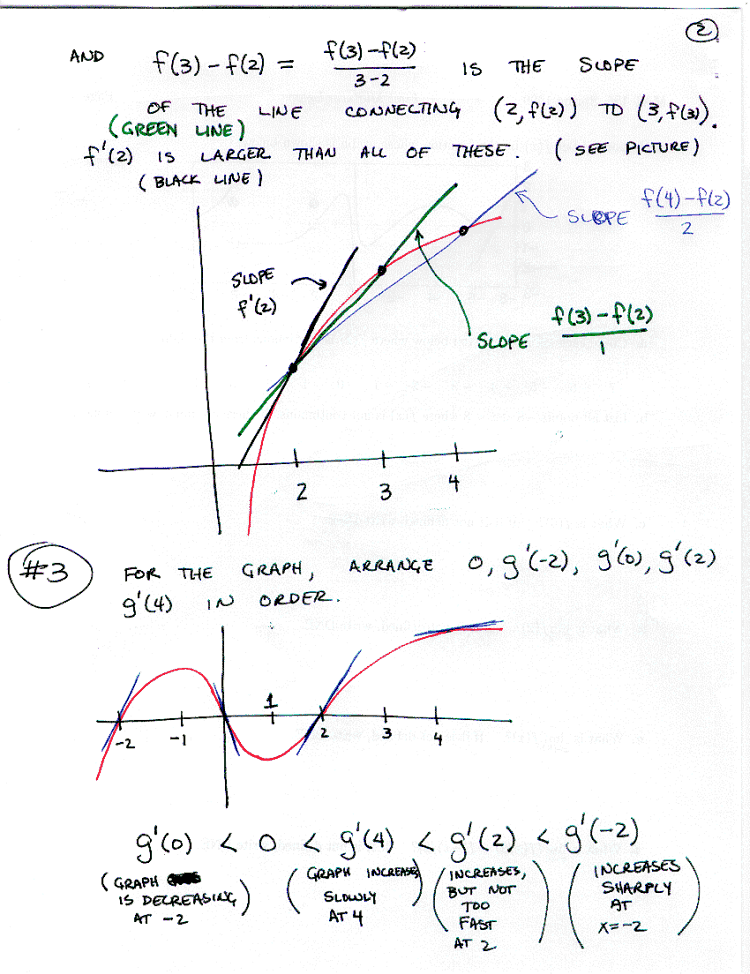 2
AND f(3) - f(2) = f(3)-f(2) / 3-2 IS THE SLOPE
OF THE LINE CONNECTING (2, f(2)) TO (3, f(3)).
(GREEN LINE)
f'(2) IS LARGER THAN ALL OF THESE. (SEE PICTURE)
(BLACK LINE)
SLOPE f(4)-f(2) / 2
SLOPE
f'(2)
SLOPE f(3)-f(2) / 1
2 3 4
#3 FOR THE GRAPH, ARRANGE 0, g'(-2), g'(0), g'(2)
g'(4) IN ORDER.
-2 -1 1 2 3 4
g'(0) < 0 < g'(4) < g'(2) < g'(-2)
(GRAPH IS DECREASING AT -2)
(GRAPH INCREASES SLOWLY AT 4)
(INCREASES, BUT NOT TOO FAST AT 2)
(INCREASES SHARPLY AT X=-2)